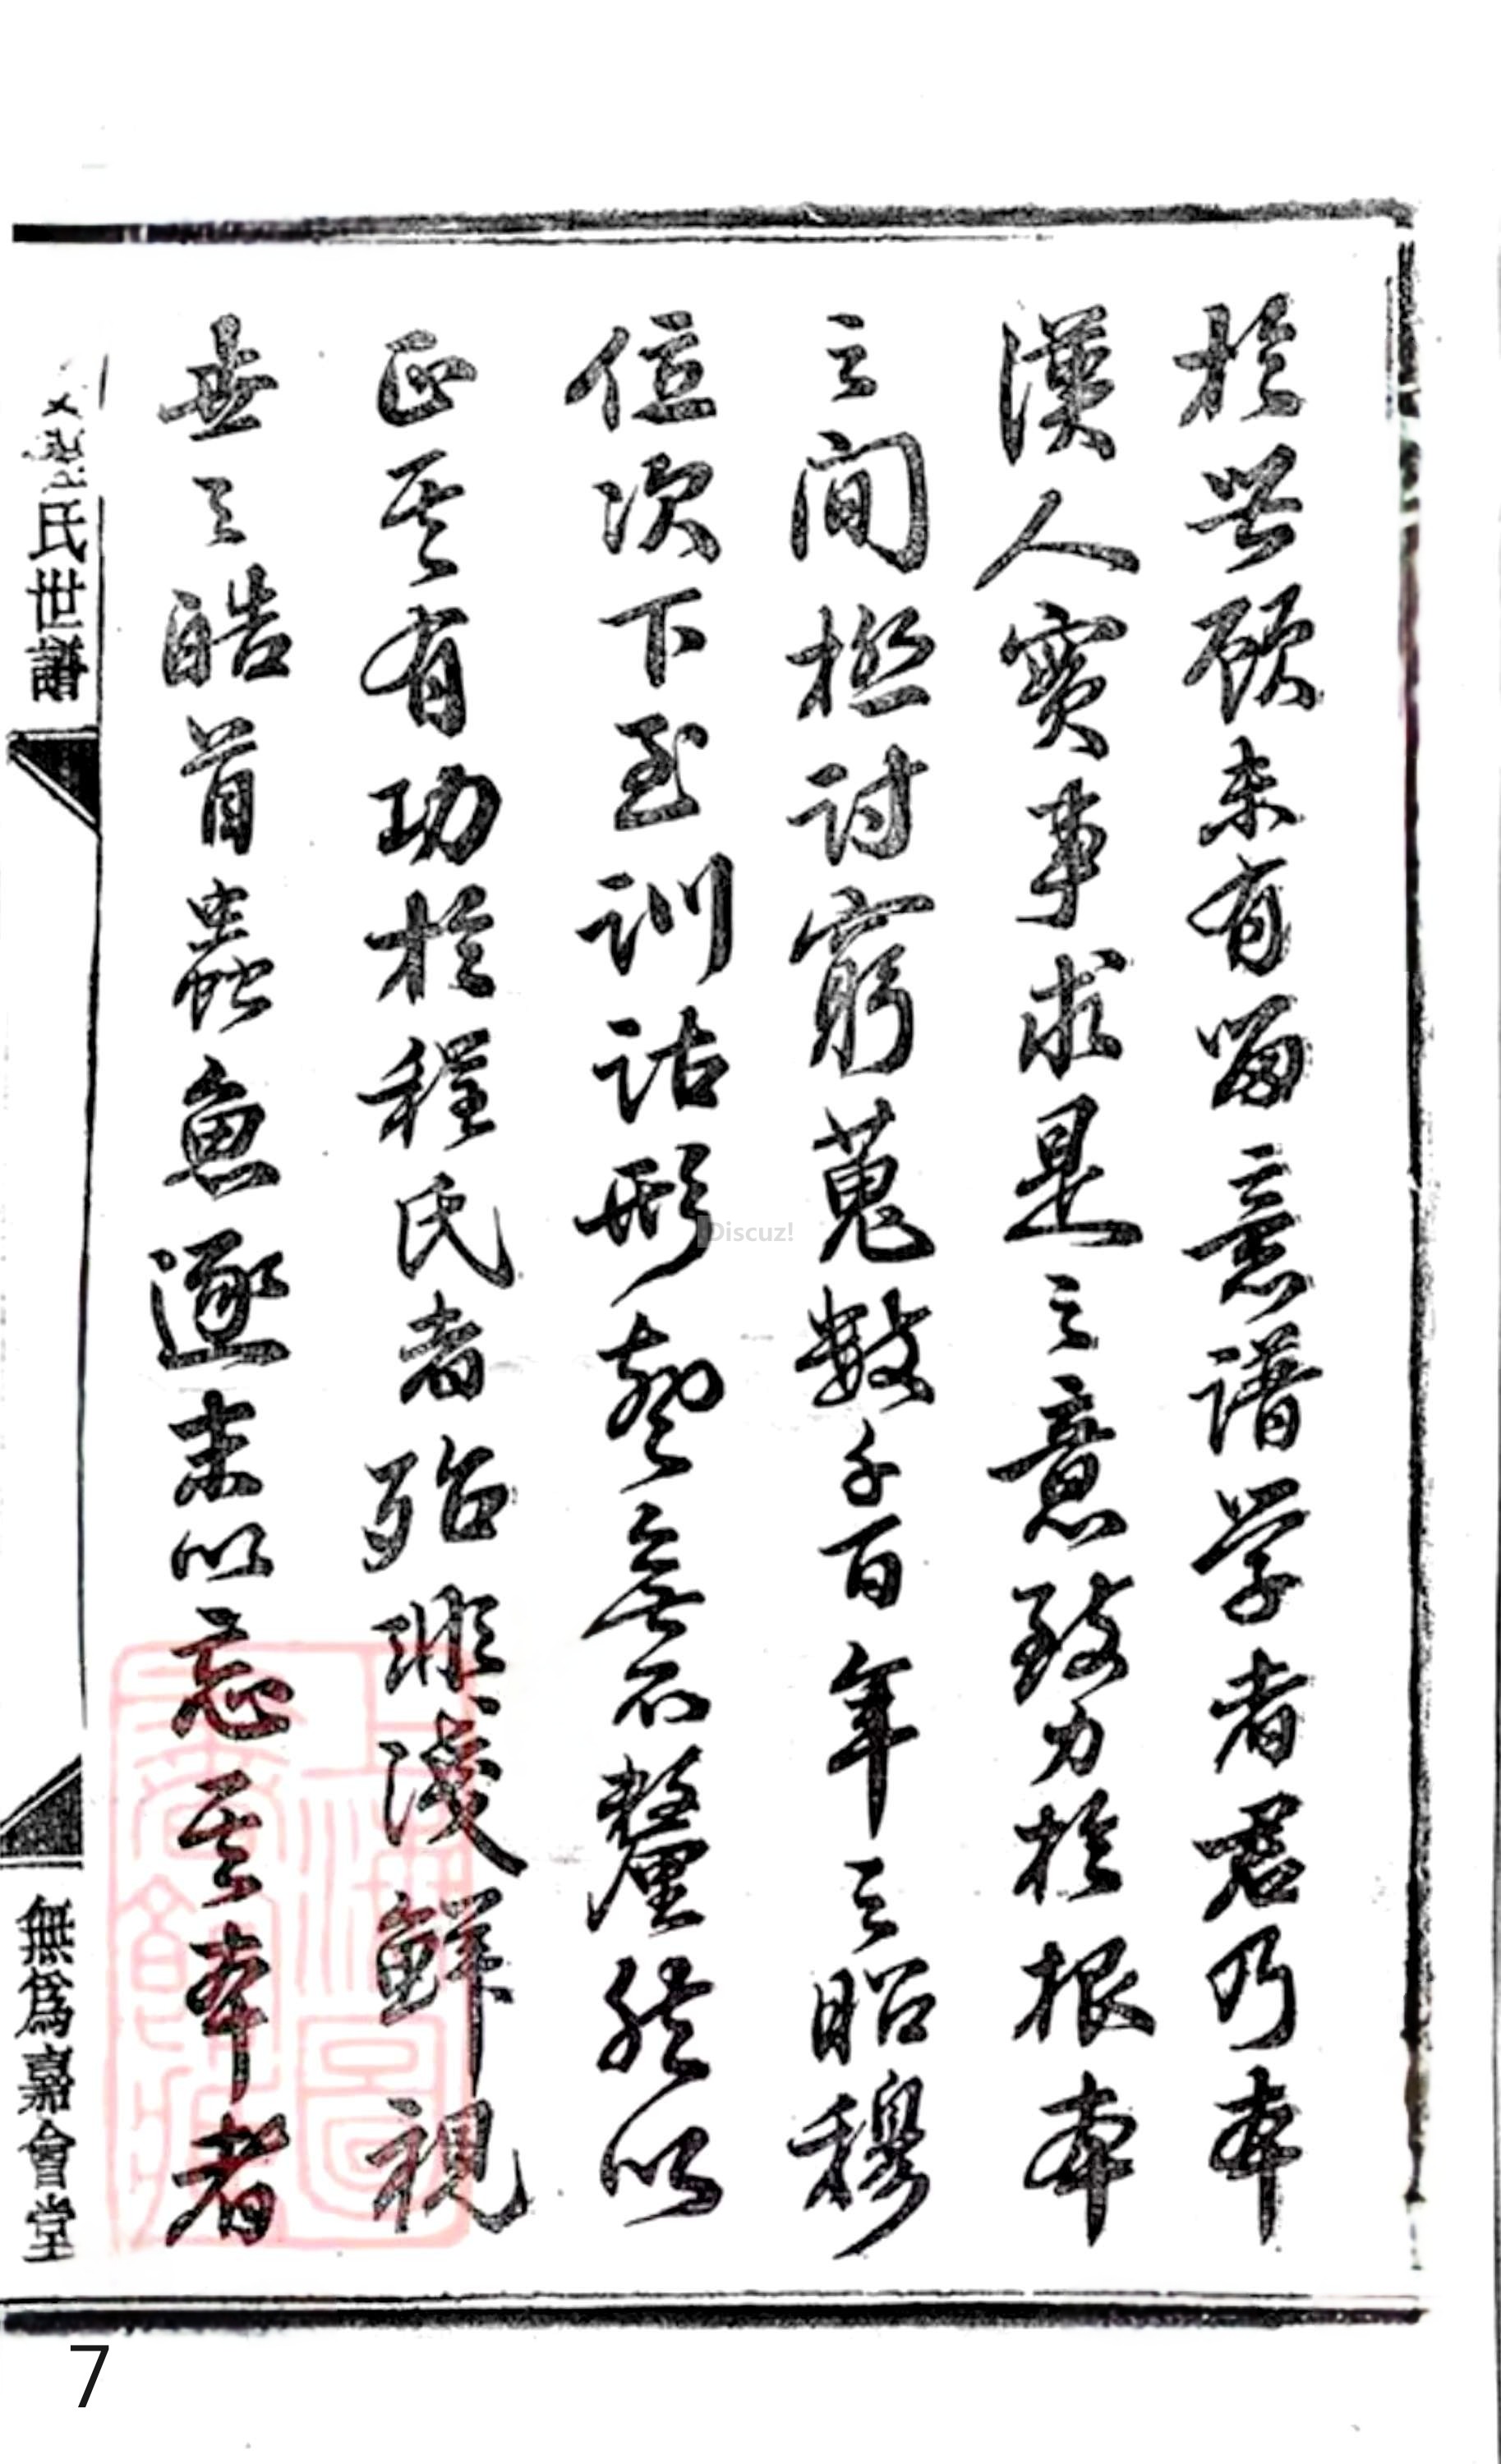 於顧未有留意譜学者君乃本
漢人實事求是之意致力於根本
之間極討窮蒐數千百年之昭穆
位次下至訓詁形聲無不釐然以
正其有功於程氏者殆非淺鮮視
世之皓首蟲魚逐末以忘其本者
氏世譜
無爲嘉會堂
上海圖書館藏
Discuz!
7